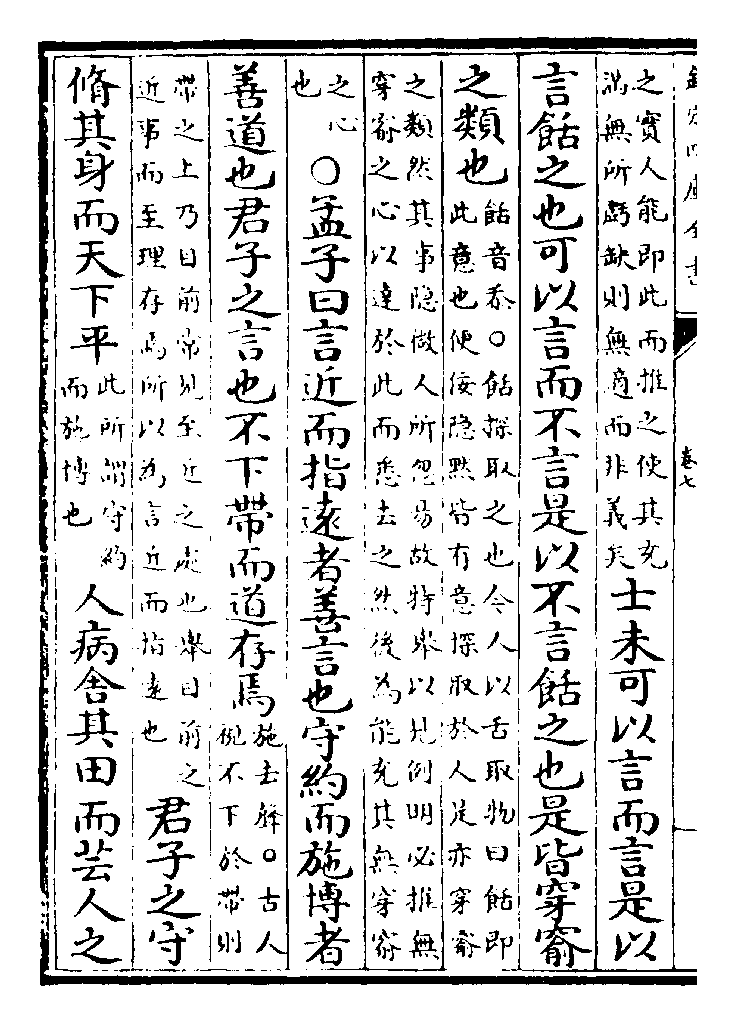 欽定四庫全書 卷七
之實人能即此而推之使其充
滿無所虧缺則無適而非義矣
士未可以言而言是以
言餂之也可以言而不言是以不言餂之也是皆穿窬
之類也
餂音忝○餂探取之也今人以舌取物曰餂即
此意也便佞隱默皆有意探取於人是亦穿窬
之類然其事隱微人所忽易故特舉以見例明必推無
穿窬之心以達於此而悉去之然後為能充其無穿窬
之心
也
○孟子曰言近而指遠者善言也守約而施博者
善道也君子之言也不下帶而道存焉
施去聲○古人
視不下於帶則
帶之上乃目前常見至近之處也舉目前之
近事而至理存焉所以為言近而指遠也
君子之守
脩其身而天下平
此所謂守約
而施博也
人病舍其田而芸人之